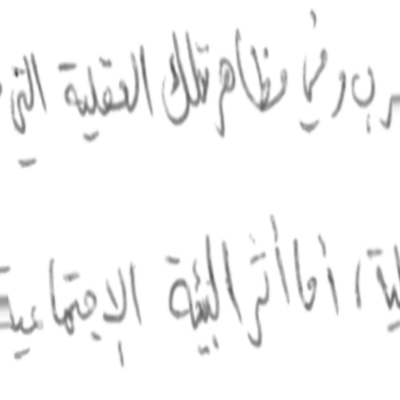 رب وفي مظاهر تلك العقلية التي
لية، أما أثر البيئة الإجتماعية